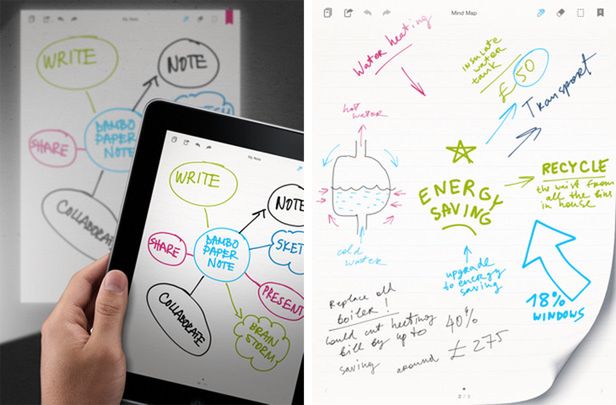 My Note
WRITE
NOTE
BAMBO
PAPER
NOTE
SHARE
COLLABORATE
My Note
WRITE
NOTE
BAMBO
PAPER
NOTE
SKET
SHARE
PRESENT
COLLABORATE
BRAIN
STORM
Mind Map
Water heating
insulate
water
tank
£50
Transport
hot
water
ENERGY
SAVING
RECYCLE
in house
cold
water
upgrade
to energy
saving
18%
WINDOWS
Replace old
boiler!
Could cut heating
bill by up to 40%
saving around £275